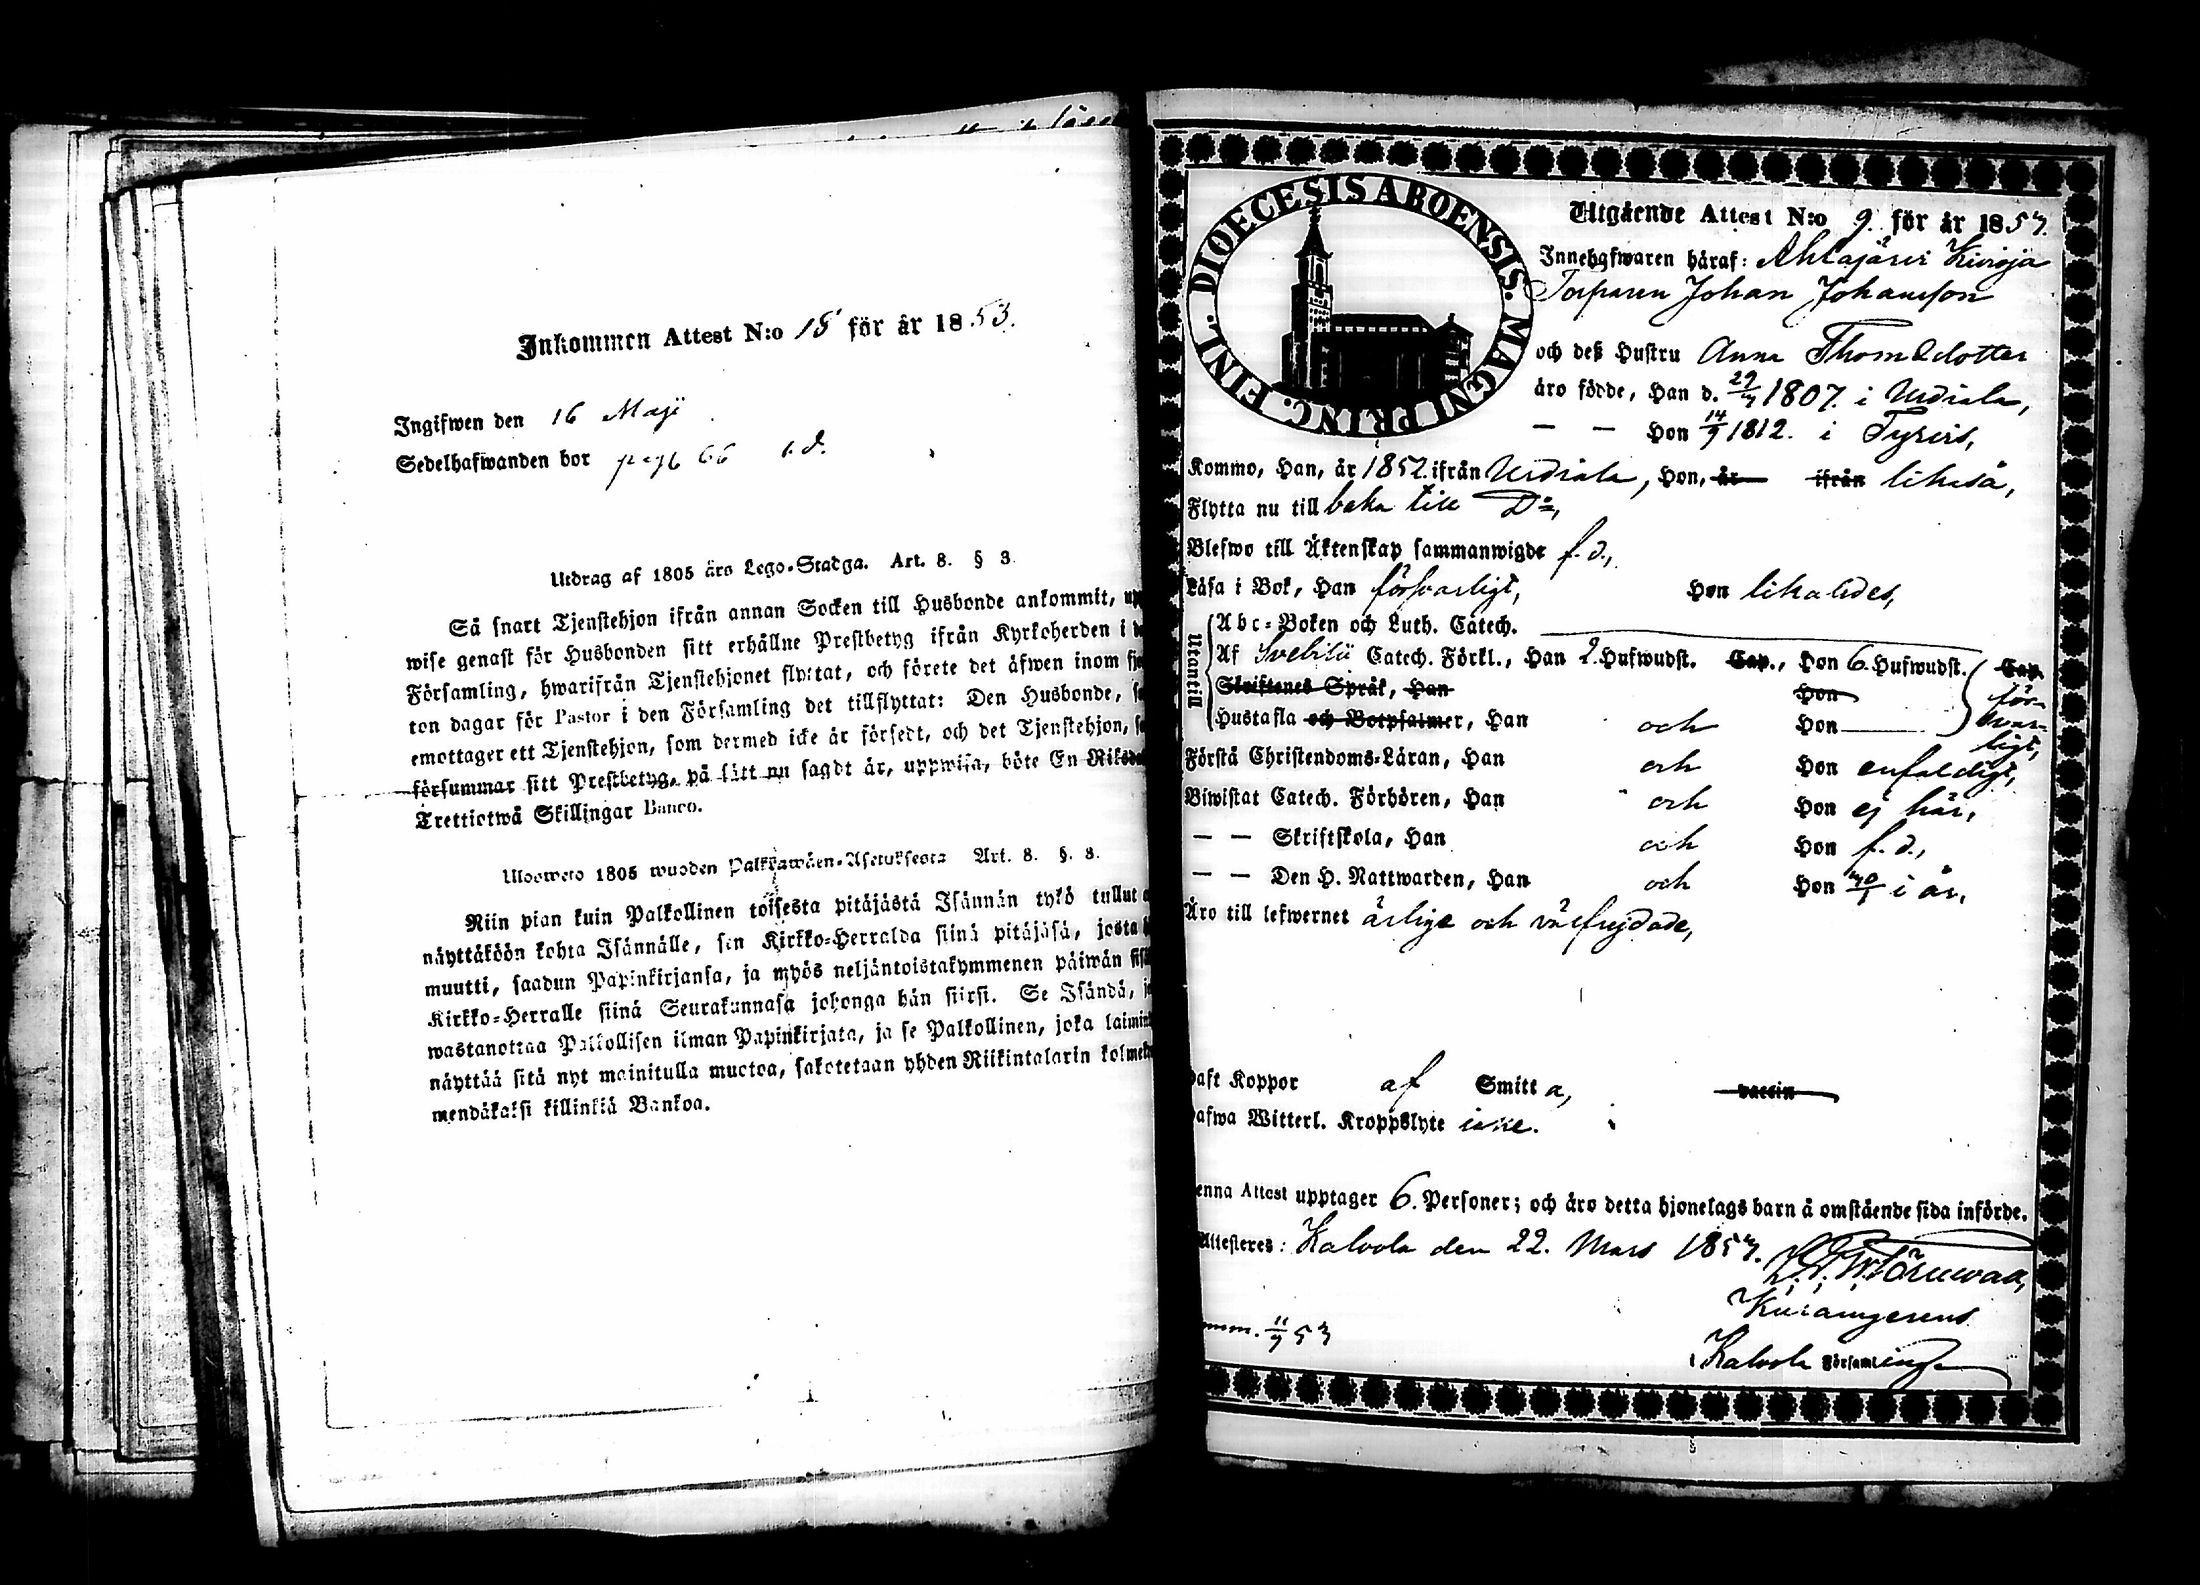 Inkommen Attest N:o 18 för år 1853.
Ingifwen den 16 Maji
Sedelhafwanden bor pag 66
Utdrag af 1805 års Lego-Stadga. Art. 8. § 3
Så snart Tjenstehjon ifrån annan Socken till Husbonde ankommit, upp
wise genast för Husbonden sitt erhållne Prestbetyg ifrån Kyrkoherden i
Församling, hwarifrån Tjenstehjonet flyttat, och förete det äfwen inom
ton dagar för Pastor i den Församling det tillflyttat: Den Husbonde,
emottager ett Tjenstehjon, som dermed icke är försedt, och det Tjenstehjon,
försummar sitt Prestbetyg, på sätt nu sagdt är, uppwisa, böte En Riksda
Trettiotwå Skillingar Banco.
Ulosweto 1805 wuoden Palkkawäen-Asetuksesta Art. 8. §. 3.
Niin pian kuin Palkollinen toisesta pitäjästä Isännän tykö tullut
näyttäköön kohta Isännälle, sen Kirkko-Herralda siinä pitäjäsä, josta
muutti, saadun Papinkirjansa, ja myös neljäntoistakymmenen päiwän sis
Kirkko-Herralle siinä Seurakunnasa johonga hän siirsi. Se Isändä,
wastanottaa Palkollisen ilman Papinkirjata, ja se Palkollinen, joka laimin
näyttää sitä nyt mainitulla muotoa, sakotetaan yhden Riikintalarin kolme
mendäkaksi killinkiä Bankoa.
DIOECESIS ABOENSIS. MAGNI PRINC. FINL.
Utgående Attest N:o 9. för år 1853.
Innehafwaren häraf: Ahlajärvi Kivioja
Torparen Johan Johansson
och deß Hustru Anna Thomsdotter
äro födde, Han d. 29/3 1807. i Urdiala,
— — Hon 14/9 1812. i Tyrvis,
Kommo, Han, år 1852. ifrån Urdiala, Hon, år ifrån likaså,
Flytta nu till baka till D:o,
Blefwo till Äktenskap sammanwigde f. d.,
Läsa i Bok, Han försvarligt, Hon likaledes,
Utantill
Abc-Boken och Luth. Catech.
Af Svebilii Catech. Förkl., Han 2. Hufwudst. Cap., Hon 6. Hufwudst. Cap.
Skriftenes Språk, Han Hon för-
Hustafla och Botpsalmer, Han och Hon svar-
ligt,
Förstå Christendoms-Läran, Han och Hon enfaldigt,
Biwistat Catech. Förhören, Han och Hon ej här,
— — Skriftskola, Han och Hon f. d.,
— — Den H. Nattwarden, Han och Hon i år.
Äro till lefwernet ärlige och välfrejdade,
Haft Koppor af Smitta, vaccin
Hafwa Witterl. Kroppslyte icke.
Denna Attest upptager 6. Personer; och äro detta hjonelags barn å omstående sida införde.
Attesteres: Kalvola den 22. Mars 1853.
i Kalvola Församling
53